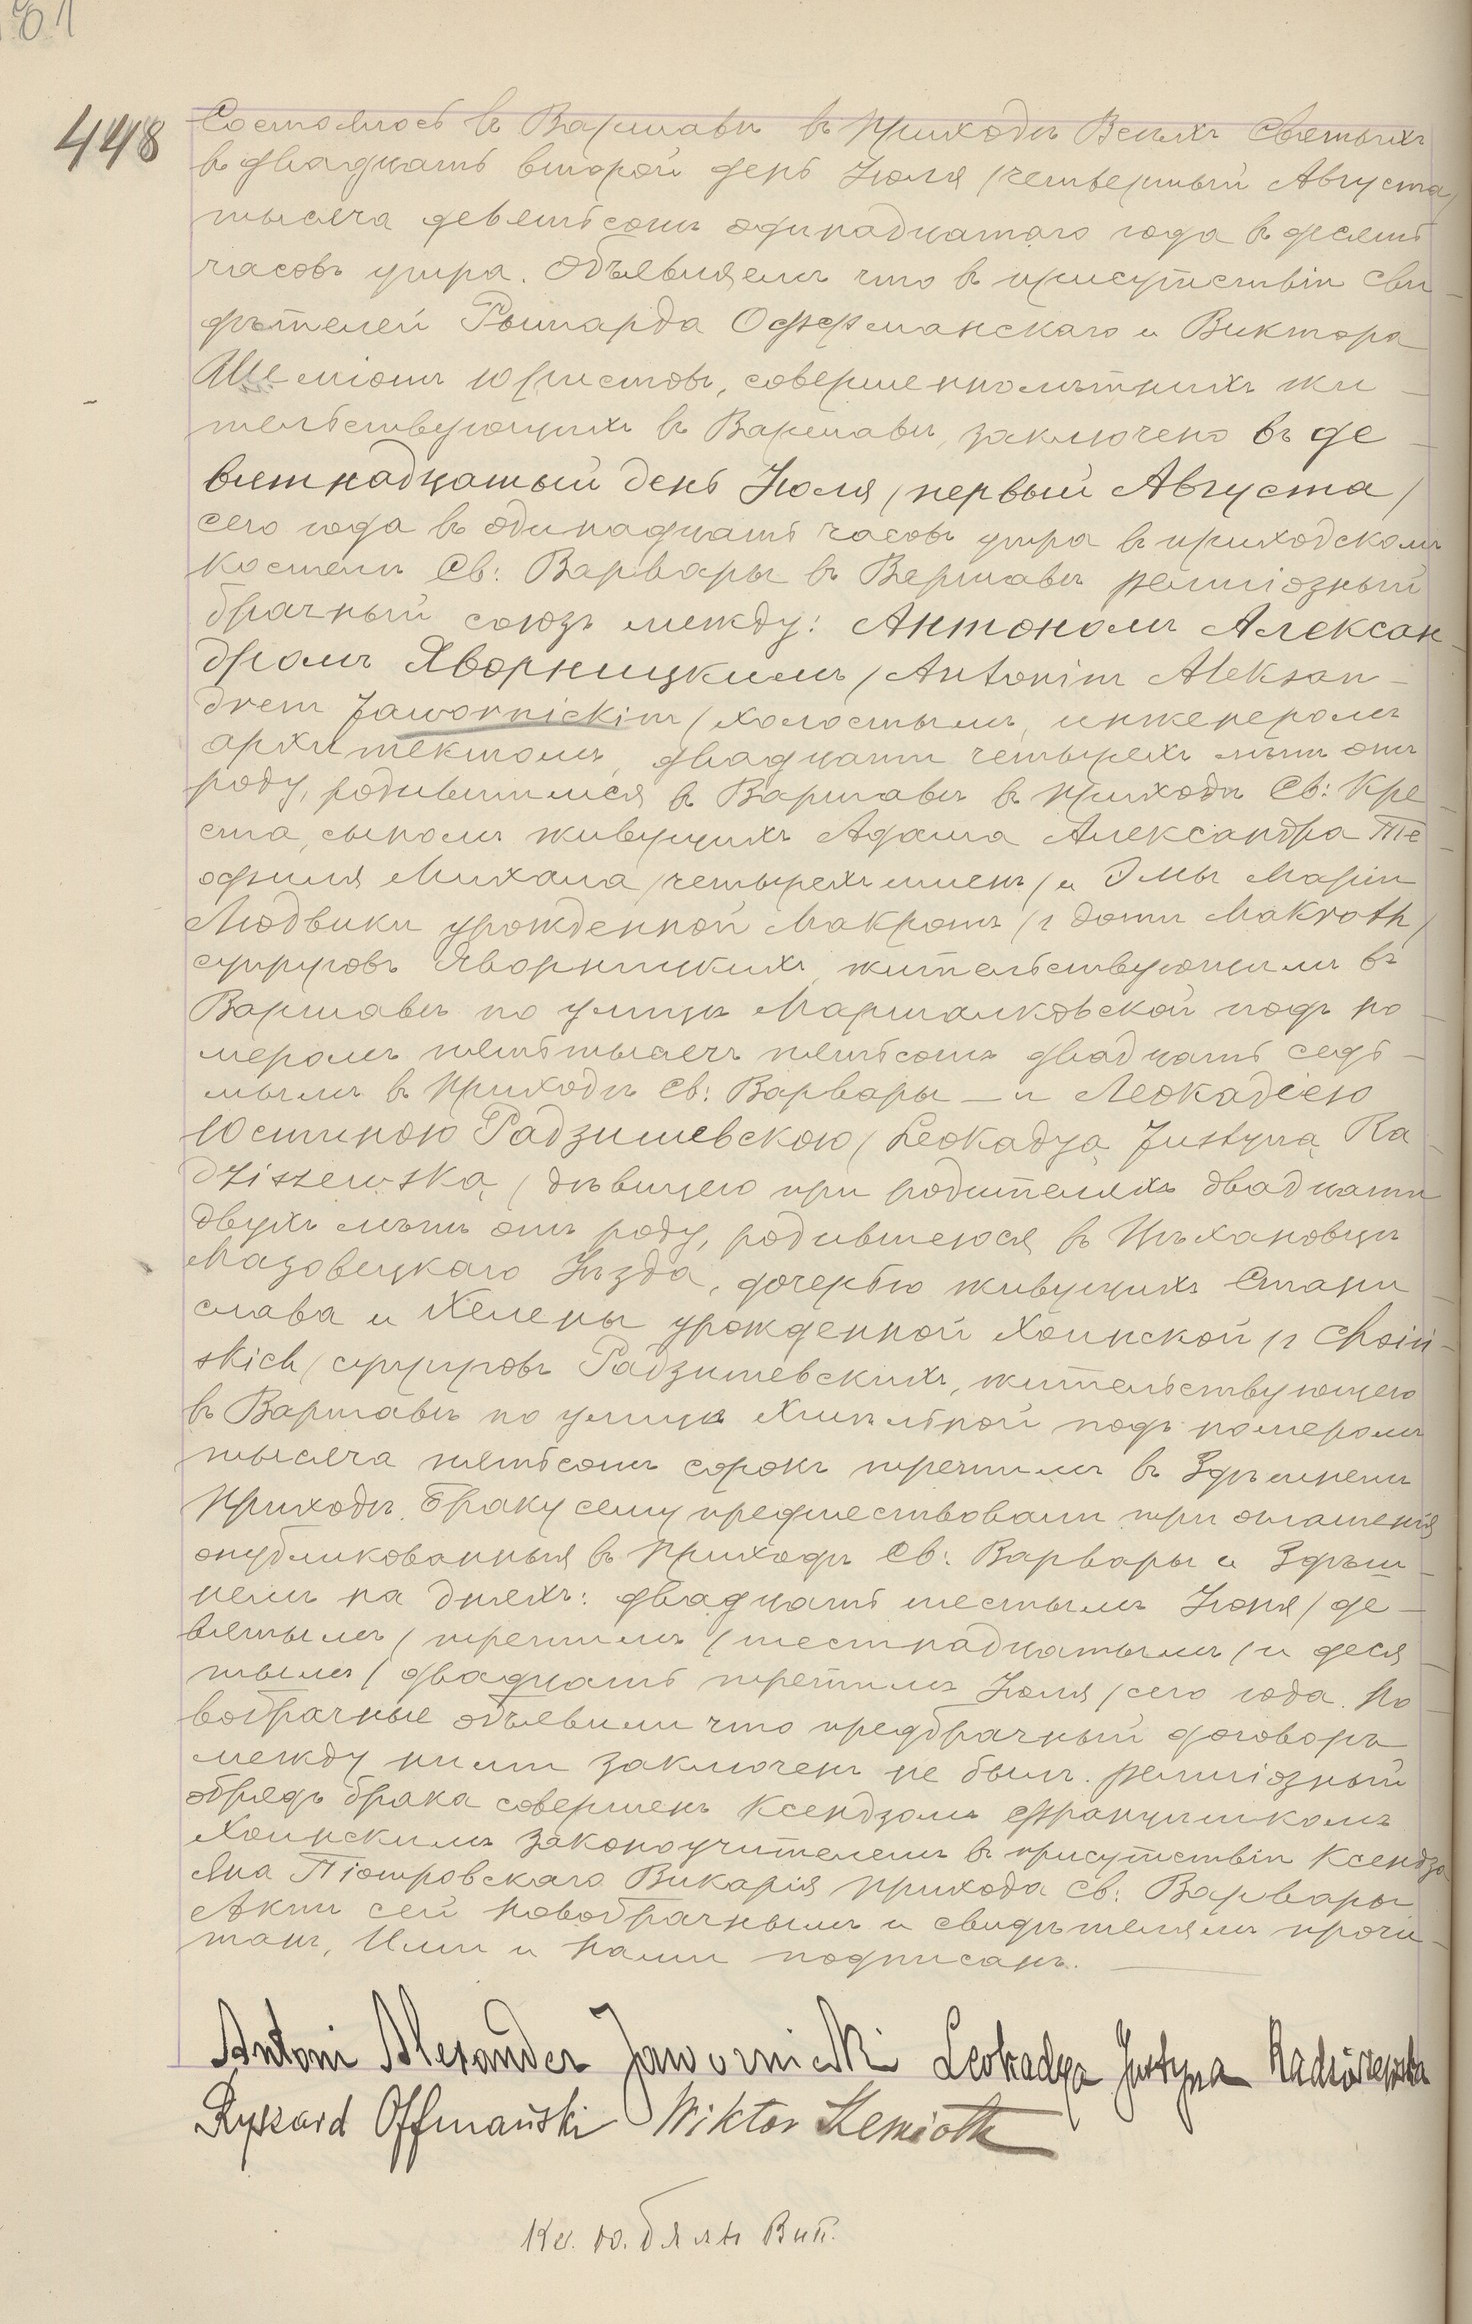 448
Состоялось въ Варшавѣ въ Приходѣ Всѣхъ Святыхъ
въ двадцать второй день Іюля /четвертый Августа/
тысяча девятьсотъ одинадцатаго года въ десять
часовъ утра. Объявляемъ что въ присутствіи сви-
дѣтелей Рышарда Оффманскаго и Виктора
Шеміотъ юристовъ, совершеннолѣтнихъ жи-
тельствующихъ въ Варшавѣ, заключено въ де-
вятнадцатый день Іюля /первый Августа/
сего года въ одинадцать часовъ утра въ приходскомъ
костелѣ Св: Варвары въ Варшавѣ религіозный
брачный союзъ между: Антономъ Алексан-
дромъ Яворницкимъ /Antonim Aleksan-
drem Jawornickim/ холостымъ, инженеромъ
архитектомъ, двадцати четырехъ лѣтъ отъ
роду, родившимся въ Варшавѣ въ Приходѣ Св: Кре-
ста, сыномъ живущихъ Адама Александра Те-
офиля Михала /четырехъ именъ/ и Эмы Маріи
Людвики урожденной Макротъ /z domu Makroth/
супруговъ Яворницкихъ, жительствующимъ въ
Варшавѣ по улицѣ Маршалковской подъ но-
меромъ пятьтысячъ пятьсотъ двадцать седь-
мымъ въ Приходѣ Св: Варвары — и Леокадіею
Юстиною Радзишевскою /Leokadyą Justyną Ra-
dziszewską/ дѣвицею при родителяхъ двадцати
двухъ лѣтъ отъ роду, родившеюся въ Цѣхановцѣ
Мазовецкаго Уѣзда, дочерью живущихъ Стани-
слава и Хелены урожденной Хоинской /z Choiń-
skich/ супруговъ Радзишевскихъ, жительствующею
въ Варшавѣ по улицѣ Хмѣльной подъ номеромъ
тысяча пятьсотъ сорокъ третимъ въ Здѣшнемъ
Приходѣ. Браку сему предшествовали три оглашенія
опубликованныя въ Приходѣ Св: Варвары и Здѣш-
немъ на дняхъ: двадцать шестымъ Іюня /де-
вятымъ/ третимъ /шестнадцатымъ/ и деся-
тымъ /двадцать третимъ Іюля/ сего года. Но-
вобрачные объявили что предбрачный договоръ
между ними заключенъ не былъ. Религіозный
обрядъ брака совершенъ Ксендзомъ Францишкомъ
Хоинскимъ законоучителемъ въ присутствіи Ксендза
Яна Піотровскаго Викарія Прихода Св: Варвары
Актъ сей новобрачнымъ и свидѣтелямъ прочи-
танъ, Ими и Нами подписанъ.
Antoni Alexander Jawornicki Leokadya Justyna Radziszewska
Ryszard Offmański Wiktor Szemioth
Кс. Ю.